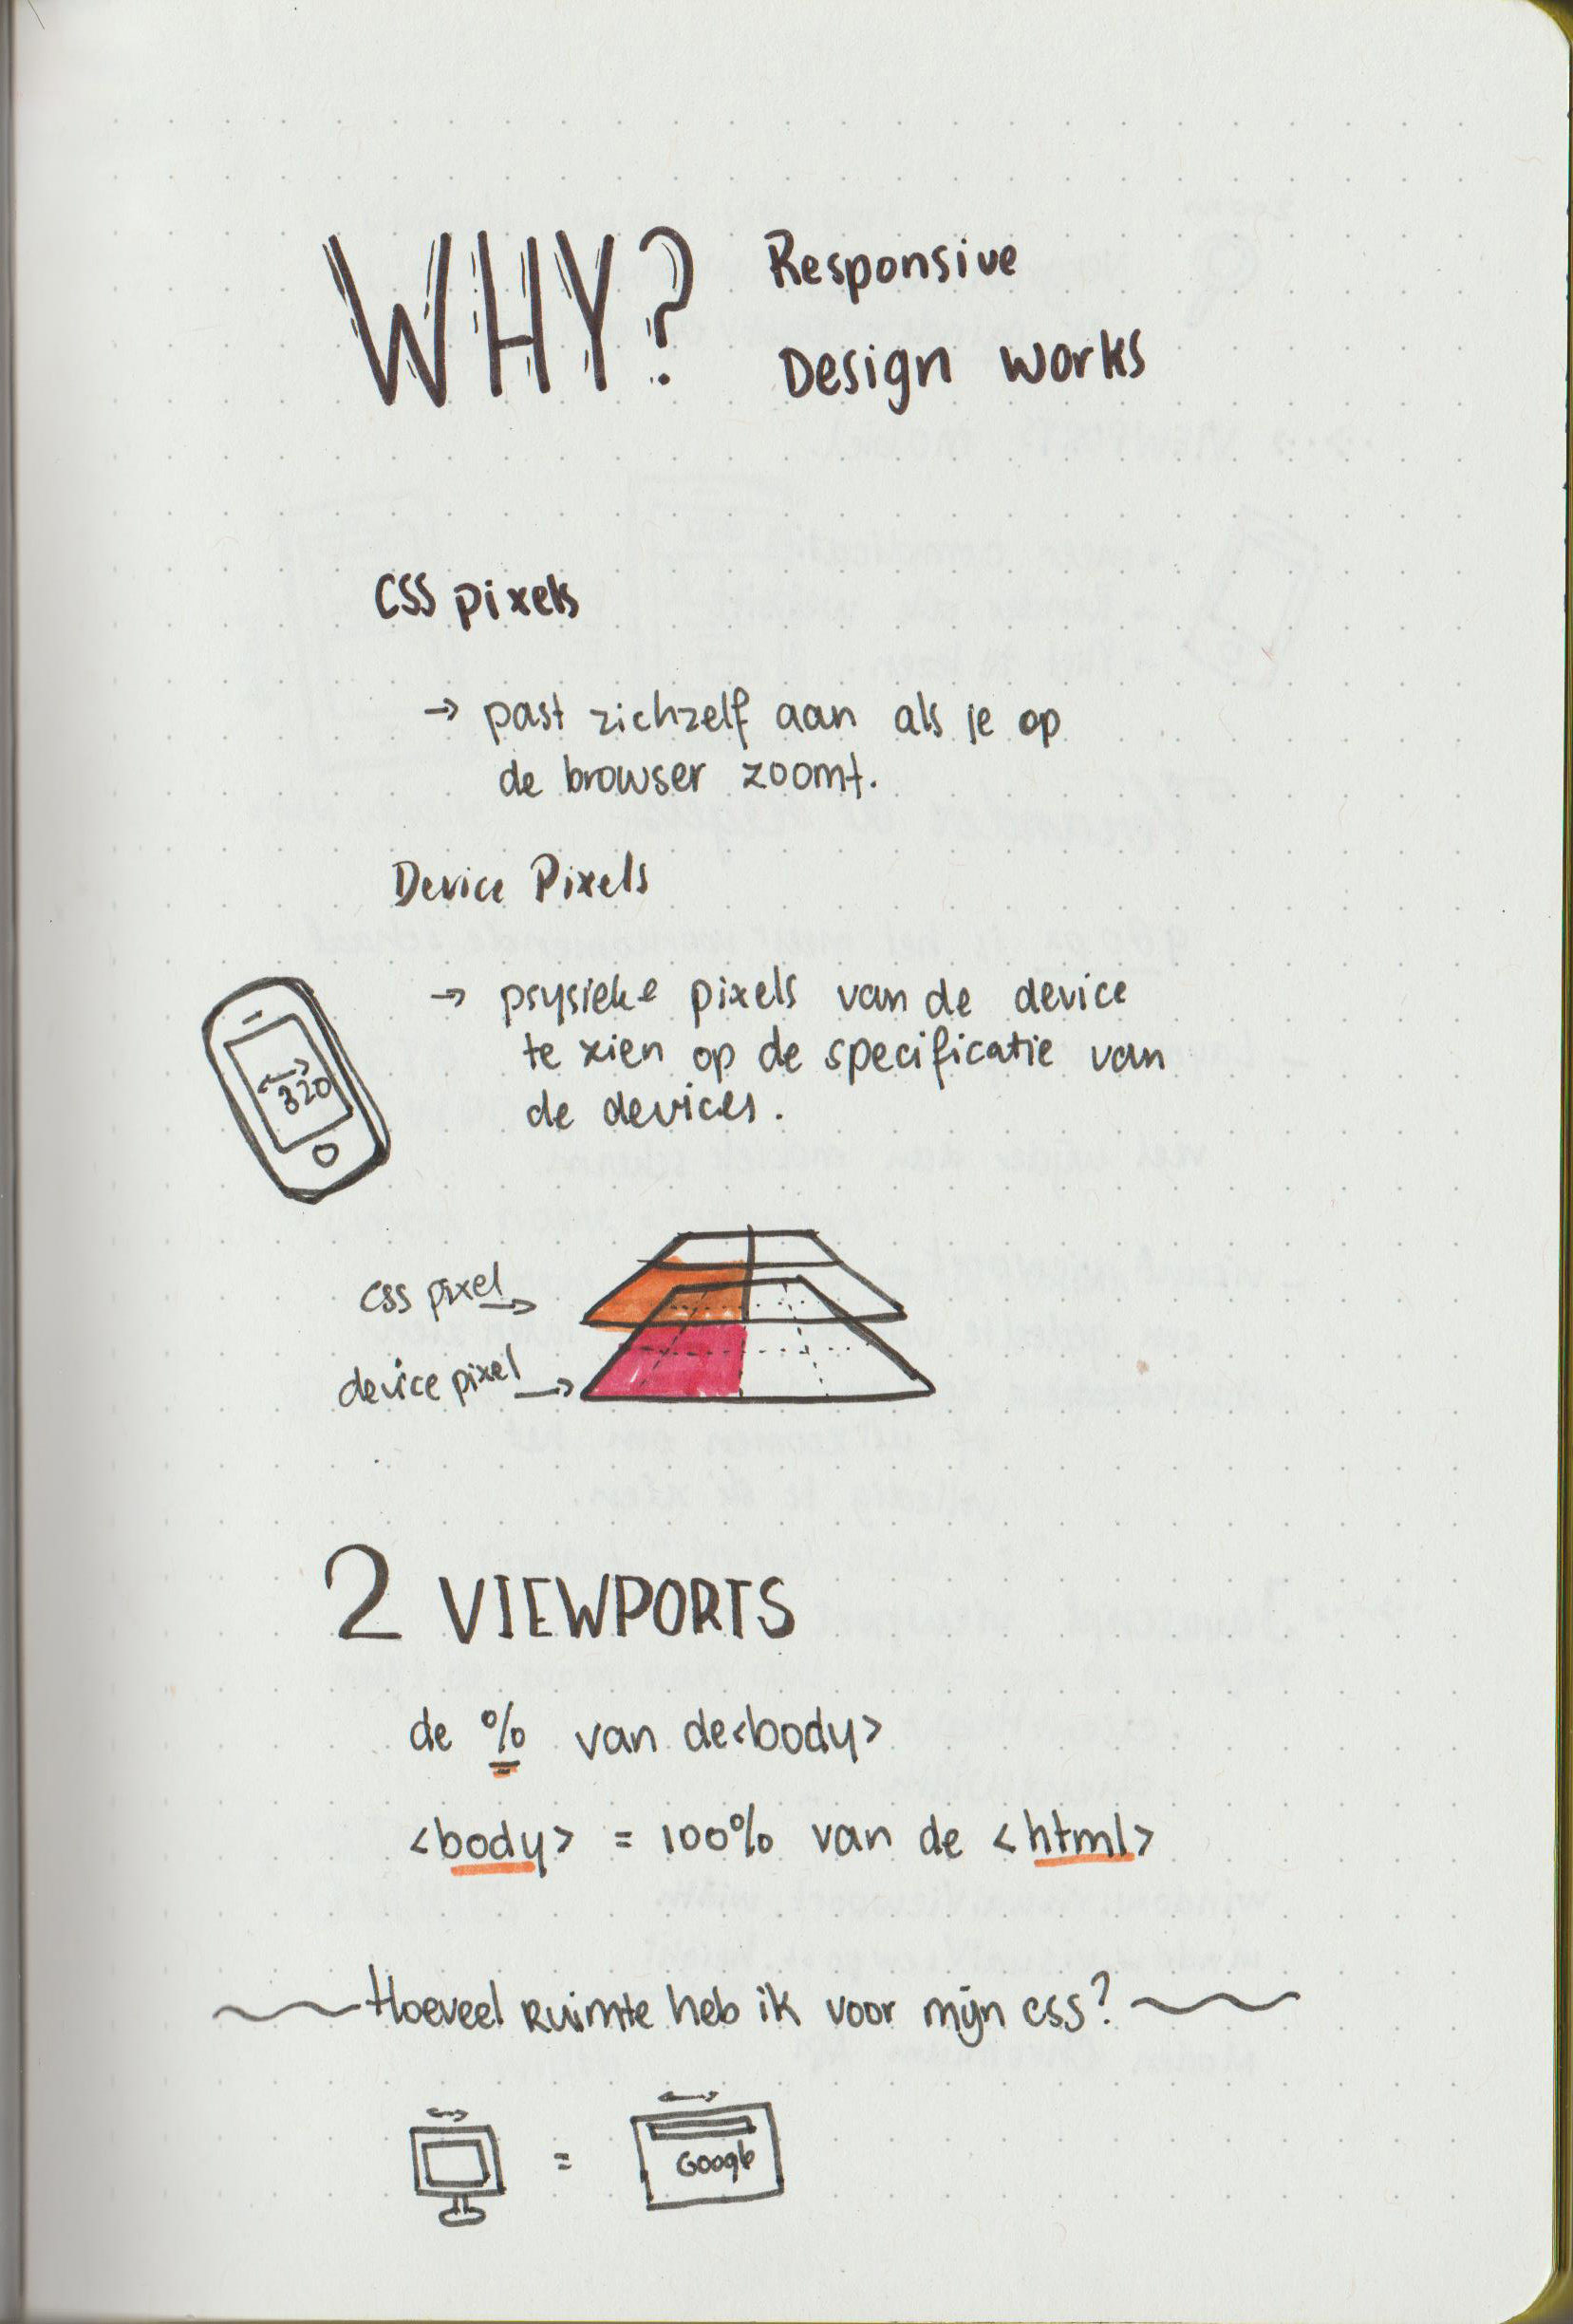 WHY? Responsive
Design works
CSS pixels
→ past zichzelf aan als je op
de browser zoomt.
Device Pixels
→ psysieke pixels van de device
te zien op de specificatie van
de devices.
320
css pixel →
device pixel →
2 VIEWPORTS
de % van de <body>
<body> = 100% van de <html>
Hoeveel Ruimte heb ik voor mijn css?
=
Google